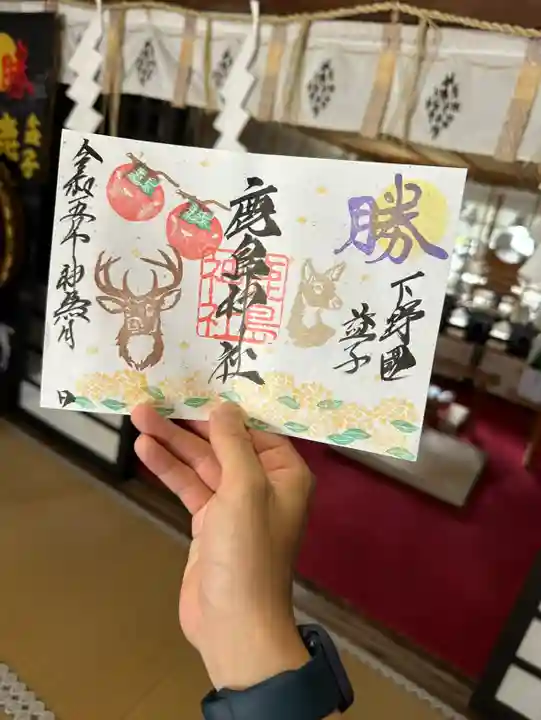 勝
下野國
益子
鹿島神社
鹿島
神社
令和五年神無月
日
勝
益子